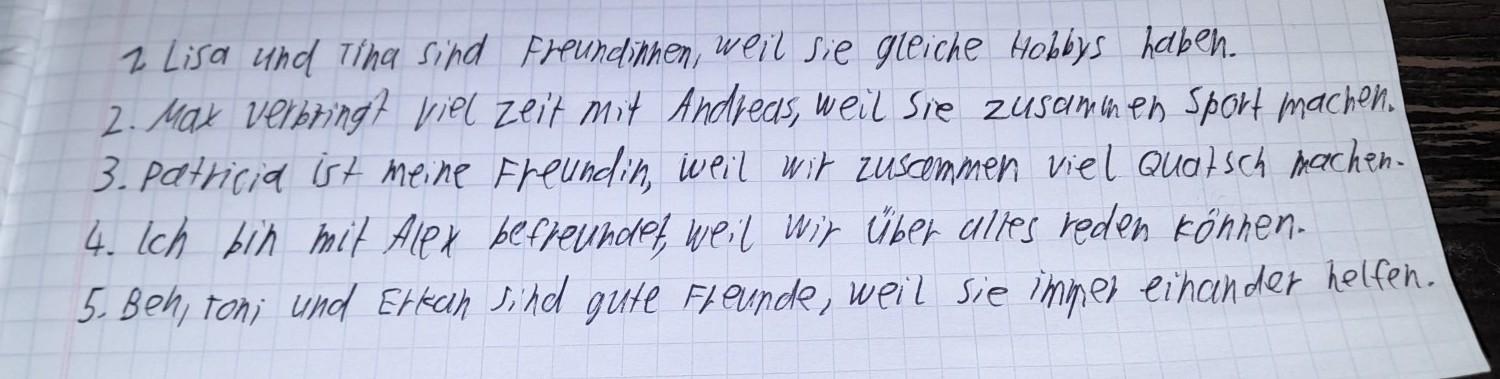 1. Lisa und Tina sind Freundinnen, weil sie gleiche Hobbys haben.
2. Max verbringt viel zeit mit Andreas, weil sie zusammen Sport machen.
3. Patricia ist meine Freundin, weil wir zusammen viel Quatsch machen.
4. Ich bin mit Alex befreundet, weil wir über alles reden können.
5. Ben, Toni und Erkan sind gute Freunde, weil sie immer einander helfen.